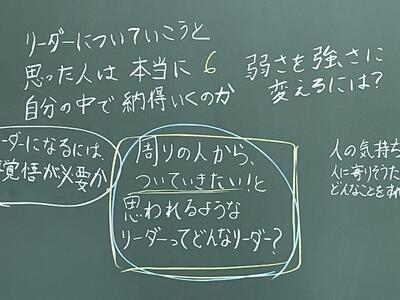 リーダーについていこうと
思った人は 本当に 6
自分の中で納得いくのか
弱さを強さに
変えるには?
ーダーになるには、
覚悟が必要か
周りの人から、
ついていきたい!と
思われるような
リーダーってどんなリーダー?
人の気持ち
人に寄りそうた
どんなことをすれ